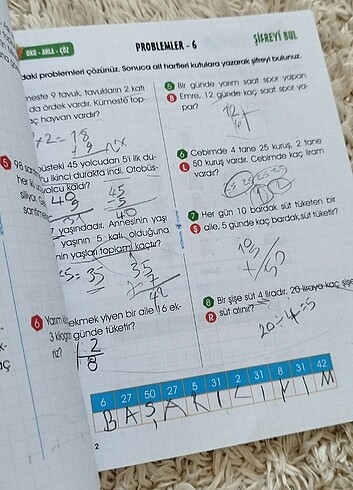 OKU - ANLA - ÇÖZ
PROBLEMLER - 6
ŞİFREYİ BUL
daki problemleri çözünüz. Sonuca ait harfleri kutulara yazarak şifreyi bulunuz.
meste 9 tavuk, tavukların 2 katı
da ördek vardır. Kümeste top-
aç hayvan vardır?
×2=18
büsteki 45 yolcudan 5'i ilk du-
u ikinci durakta indi. Otobüs-
yolcu kaldı?
45
- 5
40
7 yaşındadır. Annesinin yaşı
yaşının 5 katı olduğuna
nin yaşları toplamı kaçtır?
=35
35
7
42
6
Yarım
ekmek yiyen bir aile 16 ek-
günde tüketir?
2
8
5 Bir günde yarım saat spor yapan
B Emre, 12 günde kaç saat spor ya-
par?
12
6
6 Cebimde 4 tane 25 kuruş, 2 tane
L 50 kuruş vardır. Cebimde kaç liram
vardır?
25 25 25 25
7 Her gün 10 bardak süt tüketen bir
Ş aile, 5 günde kaç bardak süt tüketir?
10
50
8 Bir şişe süt 4 liradır. 20 liraya kaç şişe
R süt alınır?
20÷4=5
6 27 50 27 5 31 2 31 8 31 42
B A Ş A R I L I Y I M
2